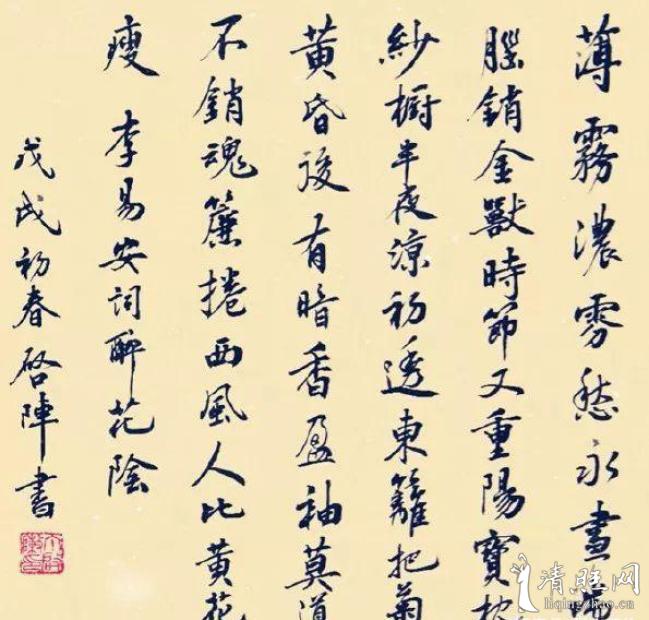 薄霧濃雰愁永晝瑞
腦銷金獸時節又重陽寶枕
紗櫥半夜涼初透東籬把菊
黃昏後有暗香盈袖莫道
不銷魂簾捲西風人比黃花
瘦 李易安詞醉花陰
戊戌初春啓陣書
清照网